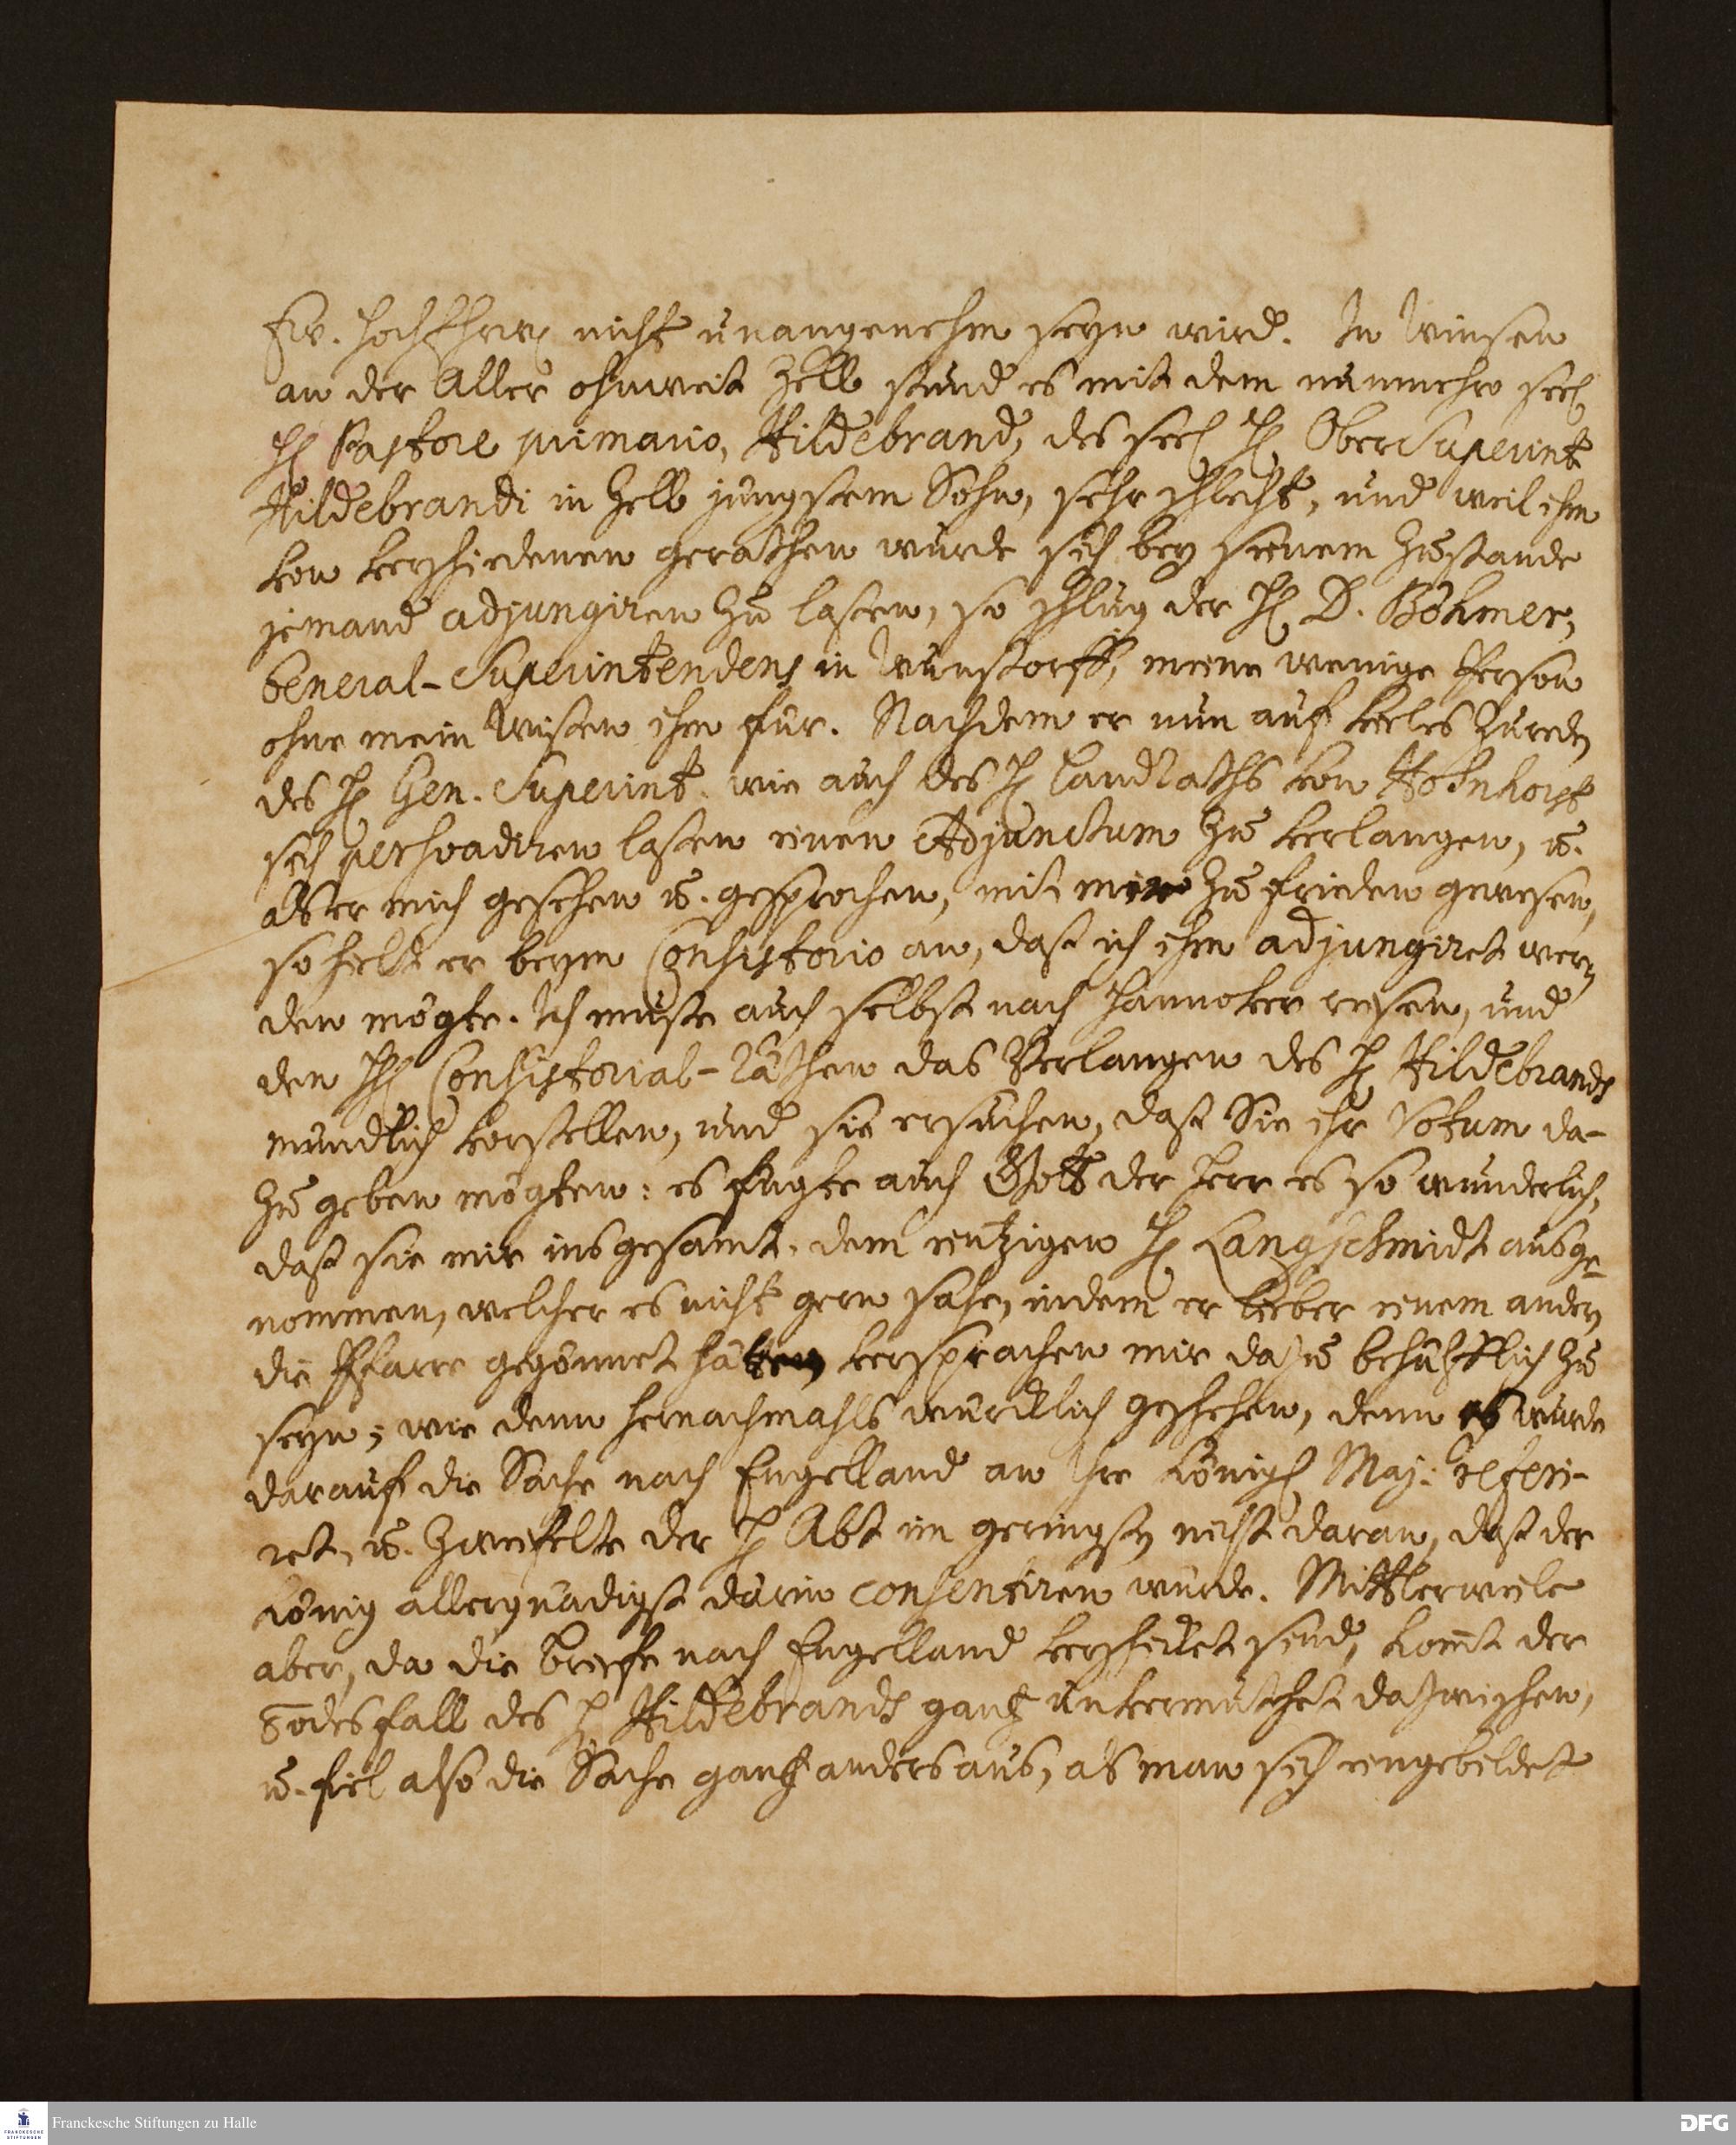 Ew. HochEhrw. nicht unangenehm seyn wird. In Winsen
an der Aller ohnweit Zell stund es mit dem nunmehro seel.
H. Pastore primario, Hildebrand, des seel. H. OberSuperint
Hildebrandi in Zell jüngstem Sohn, sehr schlecht, und weil ihm
von verschiedenen gerathen wurde sich bey seinem Zustande
jemand adjungiren zu laßen, so schlug der H. D. Böhmer,
General-Superintendens in Wunstorff, meine wenige Person
ohne mein Wißen ihm für. Nachdem er nun auf vieles Zureden
des H. Gen. Superint. wie auch des H. LandRaths von Hohnhorst
sich persvadiren laßen einen Adjunctum zu verlangen, u.
als er mich gesehen u. gesprochen, mit mir zu frieden gewesen,
so hielt er beym Consistorio an, daß ich ihm adjungiret wer-
den mögte. Ich muste auch selbst nach Hannover reisen, und
den HH. Consistorial-Räthen das Verlangen des H. Hildebrands
mündlich vorstellen, und sie ersuchen, daß Sie ihr Votum da-
zu geben mögten: es fügte auch Gott der Herr es so wunderlich,
daß sie mir insgesamt, dem eintzigen H. Langschmidt ausge-
nommen, welcher es nicht gern sahe, indem er lieber einem andern
die Pfarre gegönnet hätte, versprachen mir dazu behülfflich zu
seyn; wie denn hernachmahls würcklich geschehen, denn es wurde
darauf die Sache nach Engelland an Ihre Königl. Maj: referi-
ret, u. zweifelte der H. Abt im geringsten nicht daran, daß der
König allergnädigst darin consentiren würde. Mittlerweile
aber, da die Briefe nach Engelland verschicket sind, komt der
Todesfall des H. Hildebrands gantz unvermuthet dazwischen,
u. fiel also die Sache gantz anders aus, als man sich eingebildet
Franckesche Stiftungen zu Halle
DFG